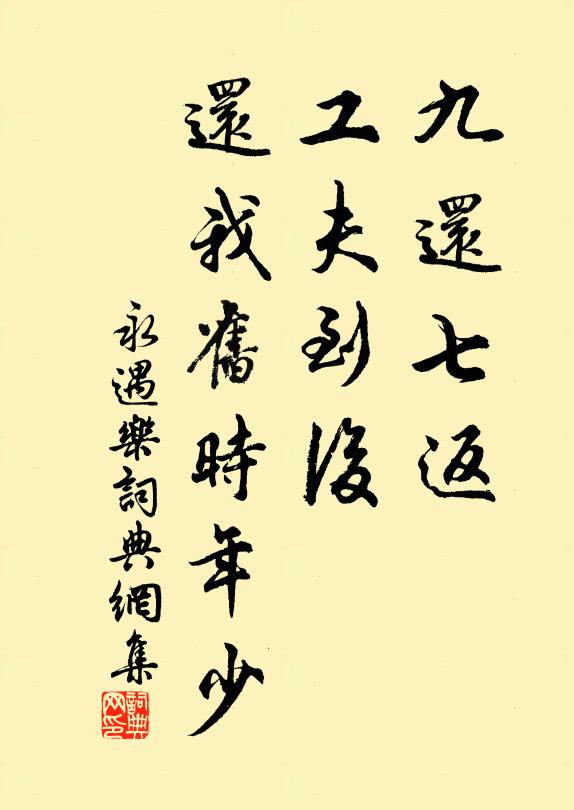 九還七返
工夫到後
還我舊時年少
永遇樂詞典網集
詞典
网印